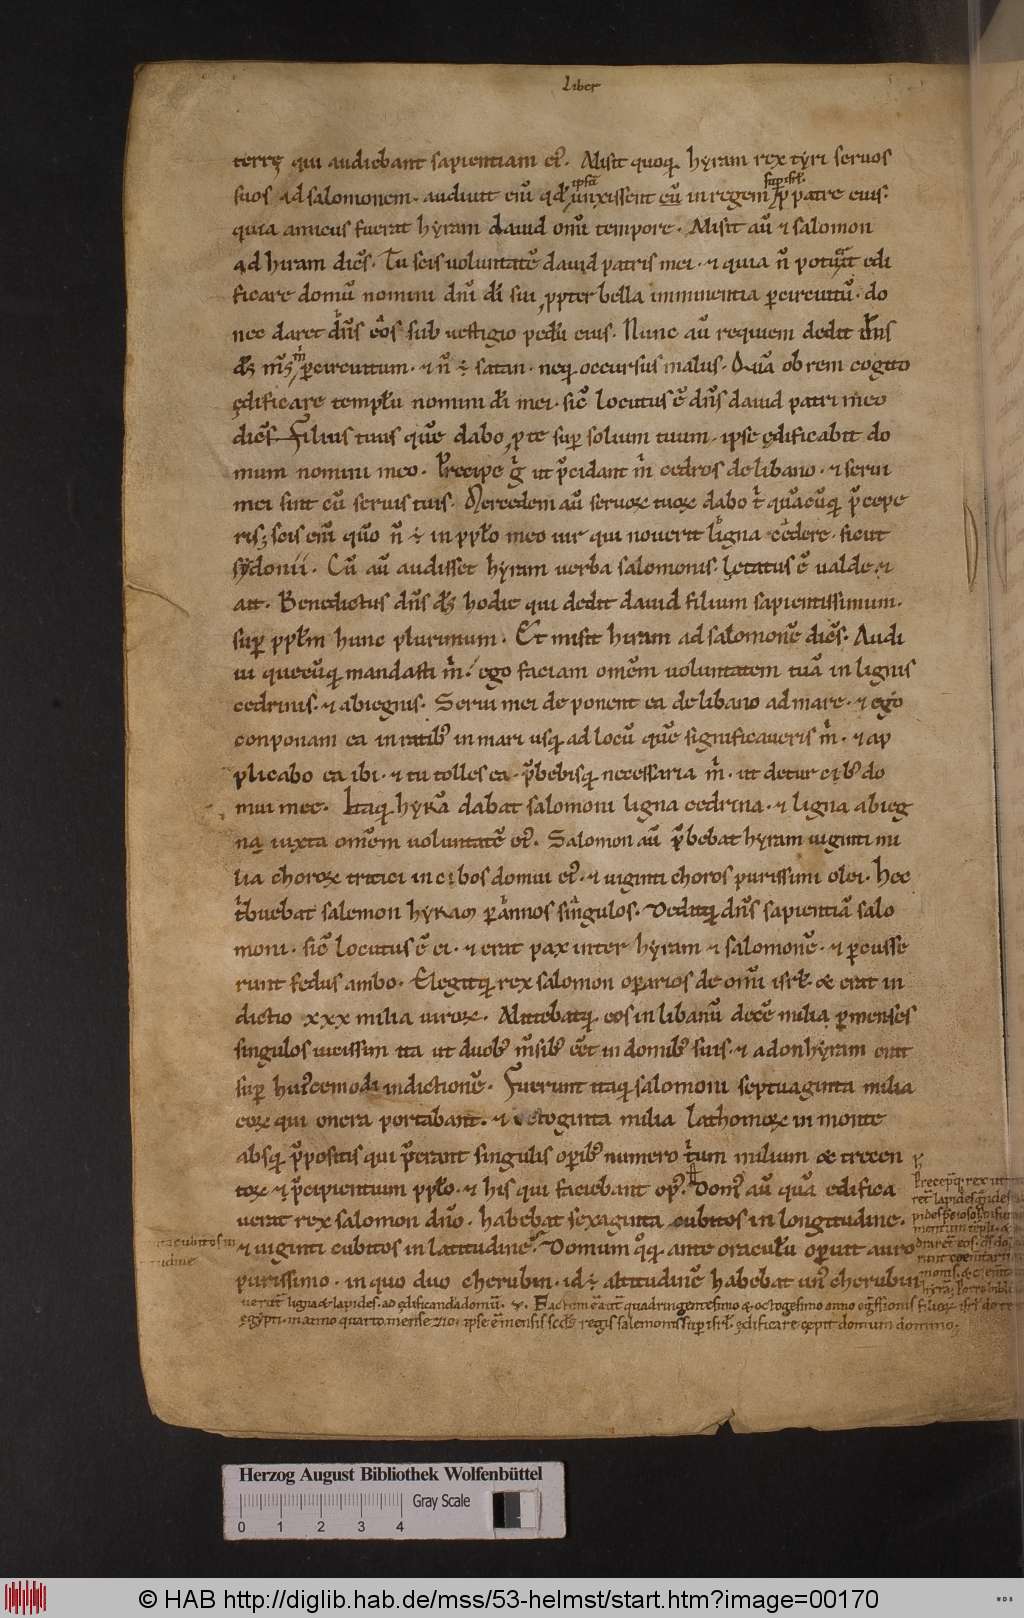 Liber
terrę qui audiebant sapientiam ei᷒. Misit quoq; hyram rex tyri seruos
suos ad salomonem. audiuit eni̅ qd̅ ipsū unxissent eu̅ in regem sup isrl̅. p patre eius.
quia amicus fuerat hyram dauid om̅i tempore. Misit au̅ & salomon
ad hiram dice̅s. Tu scis uoluntate̅ dauid patris mei. & quia n̅ potuit edi
ficare domu̅ nomini dn̅i di̅ sui, ppter bella imminentia p circuitu̅. do
nec daret dn̅s eos sub uestigio pedu̅ eius. Nunc au̅ requiem dedit dn̅s
ds̅ ms̅ m̅ p circuitum. & n̅ ÷ satan. neq; occursus malus. Qua̅ ob rem cogito
ędificare templu̅ nomini di̅ mei. sic̅ locutus e̅ dn̅s dauid patri meo
dice̅s. Filius tuus que̅ dabo p te sup solium tuum. ipse ędificabit do
mum nomini meo. Precipe g̅ ut p̅cidant m̅ cedros de libano. & serui
mei sint cu̅ seruis tuis. Mercedem au̅ seruoꝝ tuoꝝ dabo t̅ qua̅cu̅q; p̅cepe
ris; scis eni̅ quo̅ n̅ ÷ in pplo̅ meo uir qui nouerit ligna cedere. sicut
sydonii. Cu̅ au̅ audisset hyram uerba salomonis. lętatus e̅ ualde &
ait. Benedictus dn̅s ds̅ hodie qui dedit dauid filium sapientissimum.
sup pplm̅ hunc plurimum. Et misit hiram ad salomone̅ dice̅s. Audi
ui quecu̅q; mandasti m̅. ego faciam om̅em uoluntatem tua̅ in lignis
cedrinis. & abiegnis. Serui mei deponent ea de libano ad mare. & ego
conponam ea in ratib᷒ in mari usq; ad locu̅ que̅ significaueris m̅. & ap
plicabo ea ibi. & tu tolles ea. p̅bebisq; necessaria m̅. ut detur cib᷒ do
mui mee. Itaq; hyra̅ dabat salomoni ligna cedrina. & ligna abieg
na iuxta om̅em uoluntate̅ ei᷒. Salomon au̅ p̅bebat hyram uiginti mi
lia choroꝝ tritici in cibos domui ei᷒. & uiginti choros purissimi olei. Hec
t̅buebat salemon hyram p annos singulos. Deditq; dn̅s sapientia̅ salo
moni. sic̅ locutus e̅ ei. & erat pax inter hyram & salomone̅. & pcusse
runt fedus ambo. Elegitq; rex salomon oparios de om̅i isrl̅. & erat in
dictio xxx milia uiroꝝ. Mittebatq; eos in libanu̅ dece̅ milia p menses
singulos uicissim ita ut duob᷒ m̅sib᷒ ee̅t in domib᷒ suis. & adonhyram erat
sup hui᷒cemodi indictione̅. Fuerunt itaq; salomoni septuaginta milia
eoꝝ qui onera portabant. & octoginta milia lathomoꝝ in monte
absq; p̅positis qui p̅erant singulis opib᷒ numero trium milium & trecen
toꝝ & p̅cipientium pplo̅. & his qui faciebant op᷒. Dom᷒ au̅ qua̅ edifica
uerat rex salomon dn̅o. habebat sexaginta cubitos in longitudine.
& uiginti cubitos in latitudine. Domum q̊q; ante oraculu̅ opuit auro
purissimo. in quo duo cherubin. id ÷ altitudine̅ habebat un᷒ cherubin
uerunt ligna & lapides. ad ędificanda domu̅. Factum e̅ aut̅ quadringentesimo & octogesimo anno egressionis filioꝝ isrl̅ de terra
ęgypti. in anno quarto. mense zio. ipse e̅ mensis scd̅s regis salemonis sup isrl̅. ędificare cępit domum domino.
Herzog August Bibliothek Wolfenbüttel
Gray Scale
0 1 2 3 4
© HAB http://diglib.hab.de/mss/53-helmst/start.htm?image=00170